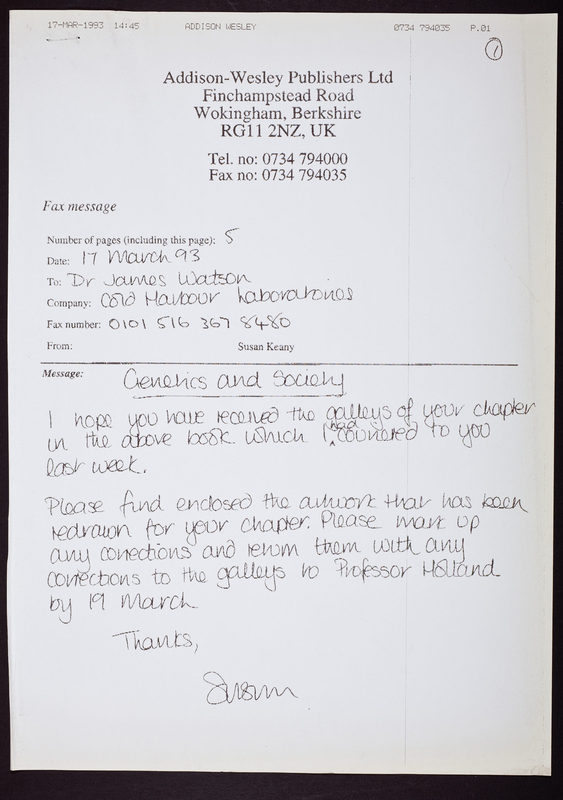 17-MAR-1993 14:45 ADDISON WESLEY 0734 794035 P.01
1
Addison-Wesley Publishers Ltd
Finchampstead Road
Wokingham, Berkshire
RG11 2NZ, UK
Tel. no: 0734 794000
Fax no: 0734 794035
Fax message
Number of pages (including this page): 5
Date: 17 March 93
To: Dr James Watson
Company: Cold Harbour Laboratories
Fax number: 0101 516 367 8480
From: Susan Keany
Message: Genetics and Society
I hope you have received the galleys of your chapter
in the above book which I had couriered to you
last week.
Please find enclosed the artwork that has been
redrawn for your chapter. Please mark up
any corrections and return them with any
corrections to the galleys to Professor Holland
by 19 March
Thanks,
Susan